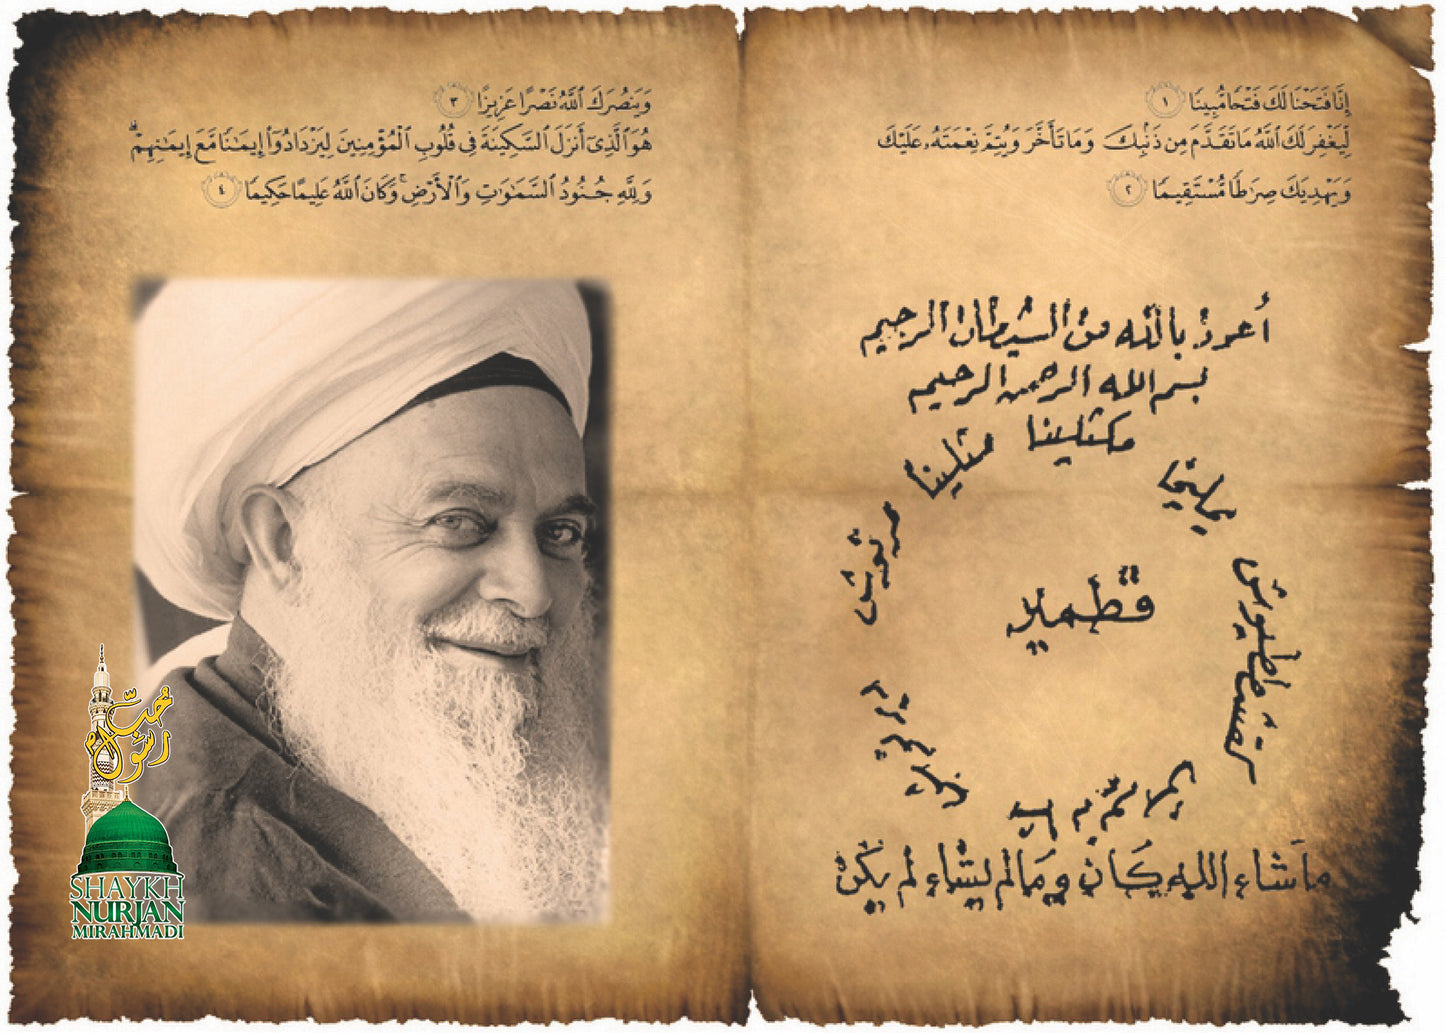 إِنَّا فَتَحْنَا لَكَ فَتْحًا مُّبِينًا ١
لِّيَغْفِرَ لَكَ ٱللَّهُ مَا تَقَدَّمَ مِن ذَنۢبِكَ وَمَا تَأَخَّرَ وَيُتِمَّ نِعْمَتَهُۥ عَلَيْكَ
وَيَهْدِيَكَ صِرَٰطًا مُّسْتَقِيمًا ٢
وَيَنصُرَكَ ٱللَّهُ نَصْرًا عَزِيزًا ٣
هُوَ ٱلَّذِىٓ أَنزَلَ ٱلسَّكِينَةَ فِى قُلُوبِ ٱلْمُؤْمِنِينَ لِيَزْدَادُوٓا۟ إِيمَٰنًا مَّعَ إِيمَٰنِهِمْ ۗ
وَلِلَّهِ جُنُودُ ٱلسَّمَٰوَٰتِ وَٱلْأَرْضِ ۚ وَكَانَ ٱللَّهُ عَلِيمًا حَكِيمًا ٤
أعوذ بالله من الشيطان الرجيم
بسم الله الرحمن الرحيم
مكثلينا
مثلينا
يمليخا
مرنوش
قطمير
ما شاء الله كان وما لم يشاء لم يكن
محب
رسول
SHAYKH
NURJAN
MIRAHMADI